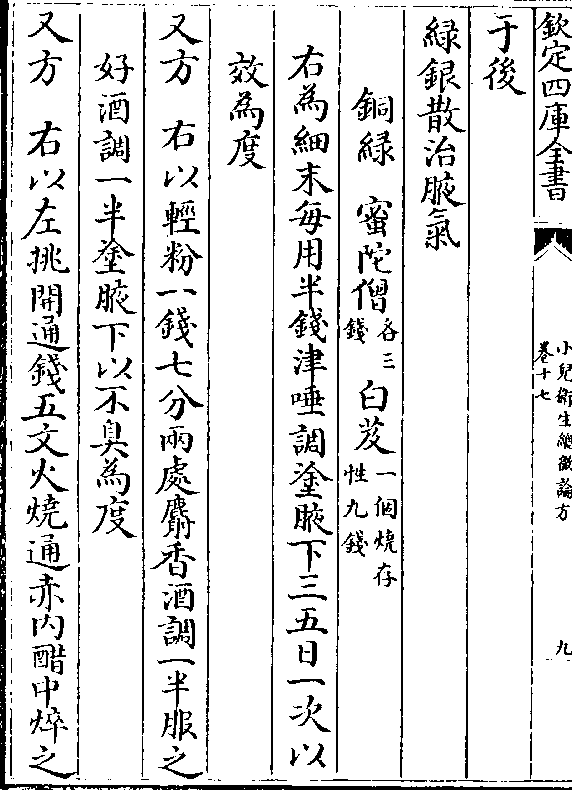 欽定四庫全書
小兒衛生總微論方
卷十七
九
于後
緑銀散治腋氣
銅緑　蜜陀僧各三錢白芨一個燒存性九錢
右為細末每用半錢津唾調塗腋下三五日一次以
效為度
又方　右以輕粉一錢七分兩處麝香酒調一半服之
好酒調一半塗腋下以不臭為度
又方　右以左挑開通錢五文火燒通赤内醋中焠之